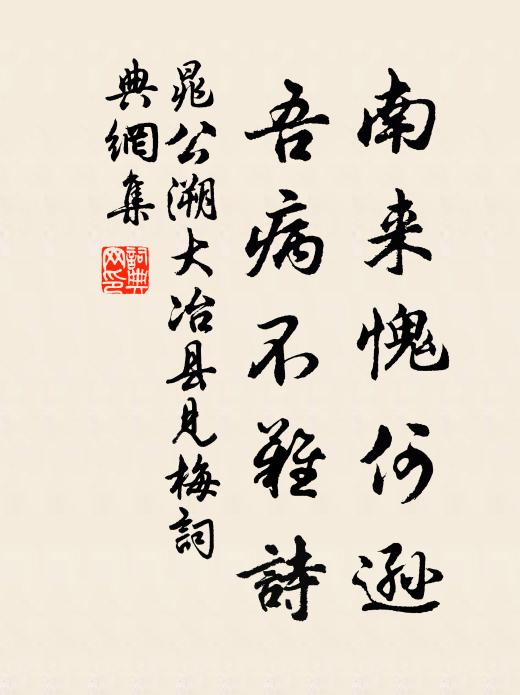 南来愧何遜
吾病不難詩
晁公溯大冶县見梅詞
典網集
詞典
网印